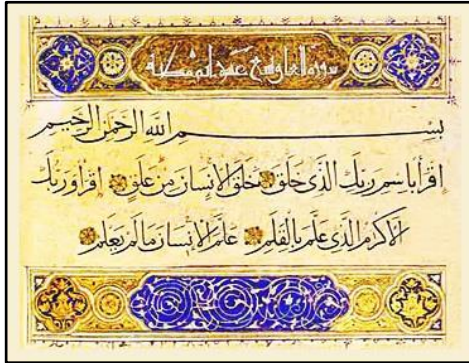 سورة العلق
بِسْمِ اللهِ الرَّحْمٰنِ الرَّحِيْمِ
اقرأ باسم ربك الذي خلق خلق الانسان من علق اقرأ وربك
الأكرم الذي علم بالقلم علم الانسان ما لم يعلم